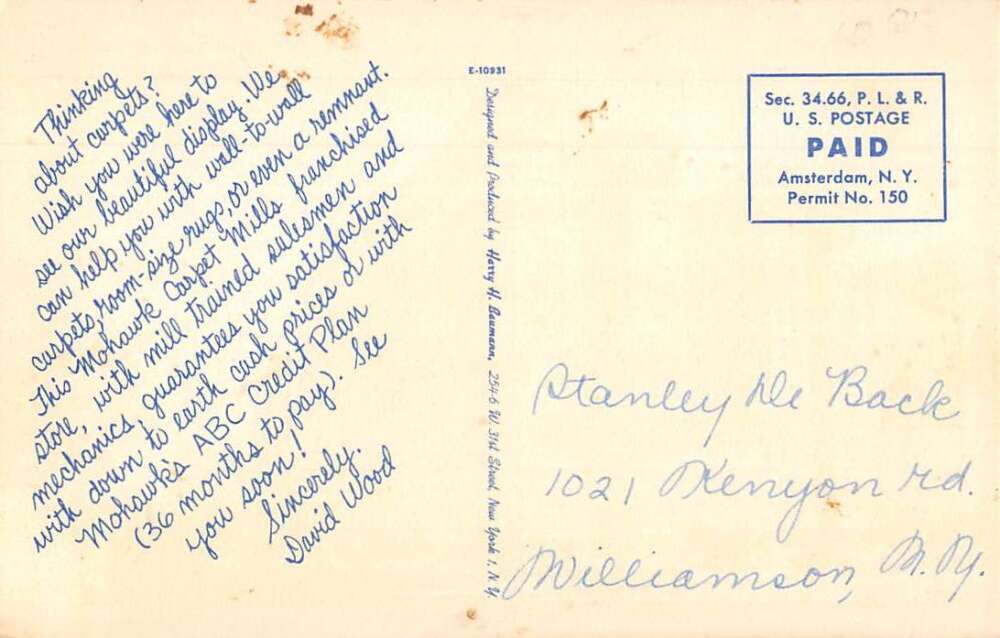 Thinking
about carpets?
Wish you were here to
see our beautiful display. We
can help you with wall-to-wall
carpets, room-size rugs, or even a remnant.
This Mohawk Carpet Mills franchised
store, with mill trained salesmen and
mechanics, guarantees you satisfaction
with down to earth cash prices or with
Mohawk's ABC Credit Plan
(36 months to pay). See
you soon!
Sincerely,
David Wood
E-10931
Designed and Produced by Harry H. Baumann, 254-6 W. 31st Street, New York 1, N.Y.
Sec. 34.66, P. L. & R.
U. S. POSTAGE
PAID
Amsterdam, N. Y.
Permit No. 150
Stanley De Back
1021 Kenyon rd.
Williamson, N. Y.